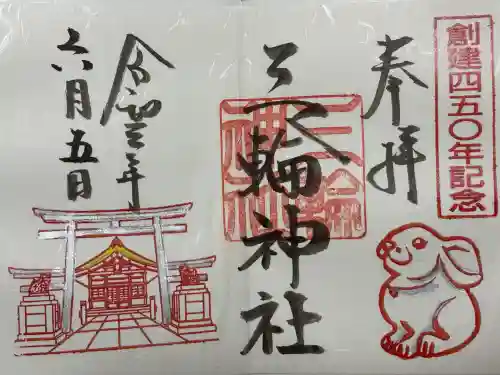 創建四五〇年記念
奉拝
三輪神社
三輪
神社
令和二年
六月五日